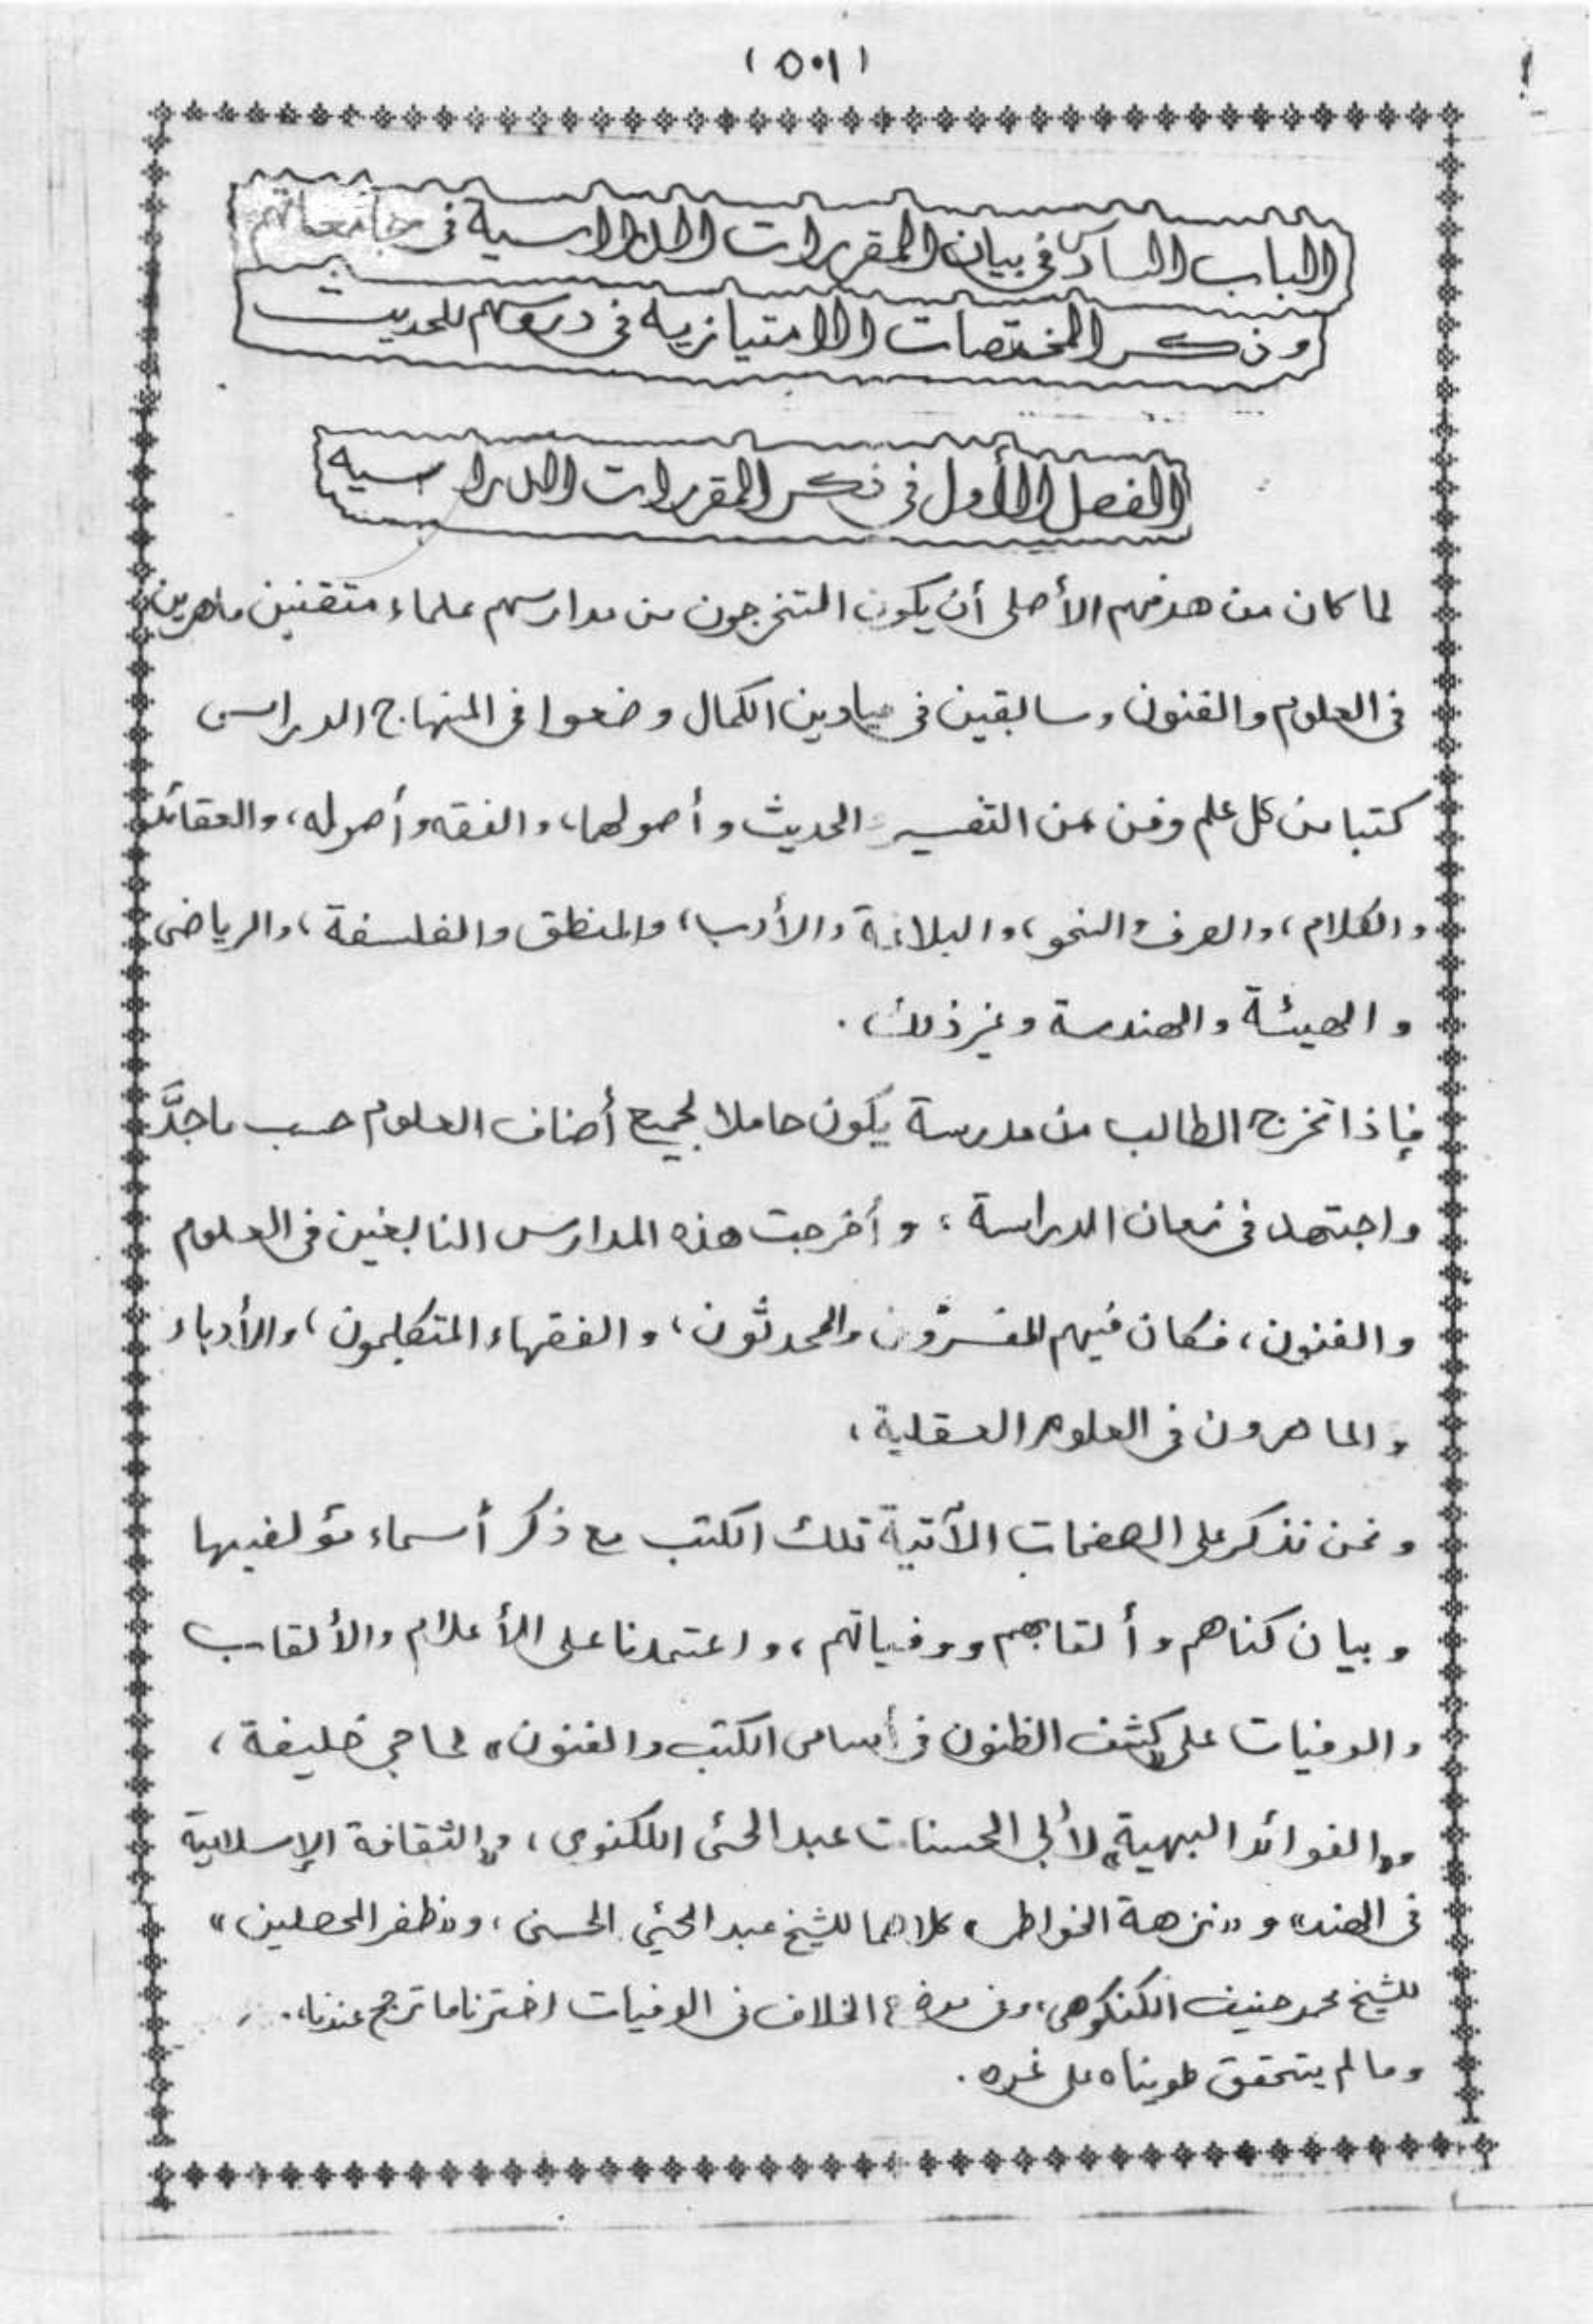 (٥٠١)
الباب السادس في بيان المقررات الدراسية في جامعاتهم
وذكر المختصات الامتيازية في دروسهم للحديث
الفصل الأول في ذكر المقررات الدراسية
لما كان من هدفهم الأصلى أن يكون المتخرجون من مدارسهم علماء متقنين ماهرين
فى العلوم والفنون وسابقين فى ميادين الكمال وضعوا فى المنهاج الدراسى
كتبا من كل علم وفن من التفسير والحديث وأصولهما، والفقه وأصوله، والعقائد
والكلام، والصرف والنحو، والبلاغة والأدب، والمنطق والفلسفة، والرياضى
والهيئة والهندسة وغير ذلك.
فإذا تخرج الطالب من مدرسة يكون حاملا لجميع أصناف العلوم حسب ماجدَّ
واجتهد فى زمان الدراسة، وأخرجت هذه المدارس النابغين فى العلوم
والفنون، فكان فيهم المفسرون والمحدثون، والفقهاء المتكلمون، والأدباء
والماهرون فى العلوم العقلية،
ونحن نذكر على الصفحات الآتية تلك الكتب مع ذكر أسماء مؤلفيها
وبيان كناهم وألقابهم ووفياتهم، واعتمدنا على الأعلام والألقاب
والوفيات على «كشف الظنون فى أسامى الكتب والفنون» لحاجي خليفة،
و«الفوائد البهية» لأبي الحسنات عبد الحئى اللكنوى، و«الثقافة الإسلامية
فى الهند» و «نزهة الخواطر» كلاهما للشيخ عبد الحئي الحسنى، و«ظفر المحصلين»
للشيخ محمد حنيف الكنكوهى، وفى موضع الخلاف فى الوفيات اخترنا ما ترجح عندنا،
وما لم يتحقق طويناه على غره.